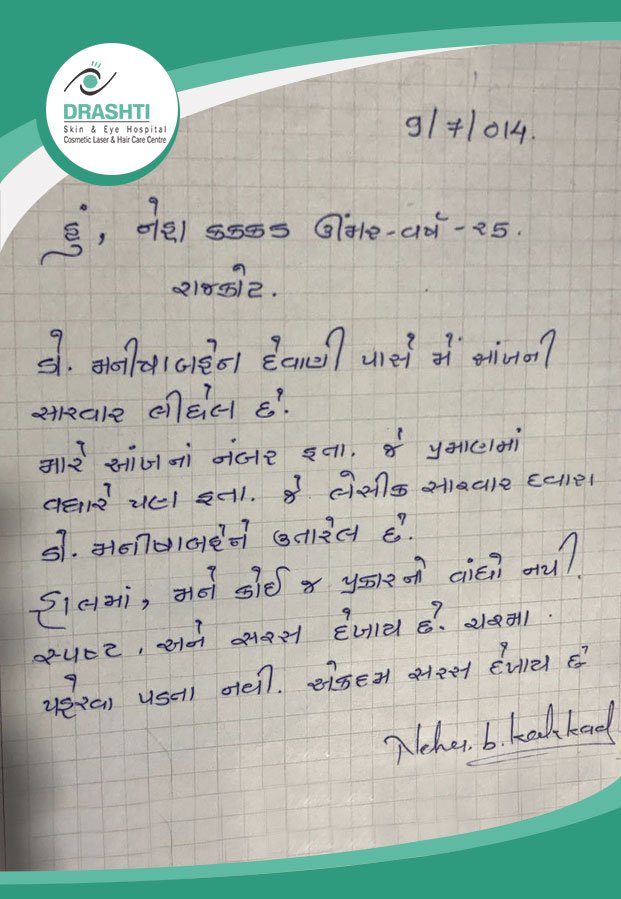 DRASHTI
Skin & Eye Hospital
Cosmetic Laser & Hair Care Centre
9/7/014.
હું, નેહા કક્કડ ઉંમર-વર્ષ - ૨૫.
રાજકોટ.
ડો. મનીષાબહેન દેવાણી પાસે મેં આંખની
સારવાર લીધેલ છે.
મારે આંખનાં નંબર હતા. જે પ્રમાણમાં
વધારે પણ હતા. જે લેસીક સારવાર દ્વારા
ડો. મનીષાબહેને ઉતારેલ છે.
હાલમાં, મને કોઈ જ પ્રકારનો વાંધો નથી.
સ્પષ્ટ, અને સરસ દેખાય છે. ચશ્મા.
પહેરવા પડતા નથી. એકદમ સરસ દેખાય છે
Neha. b. kakkad